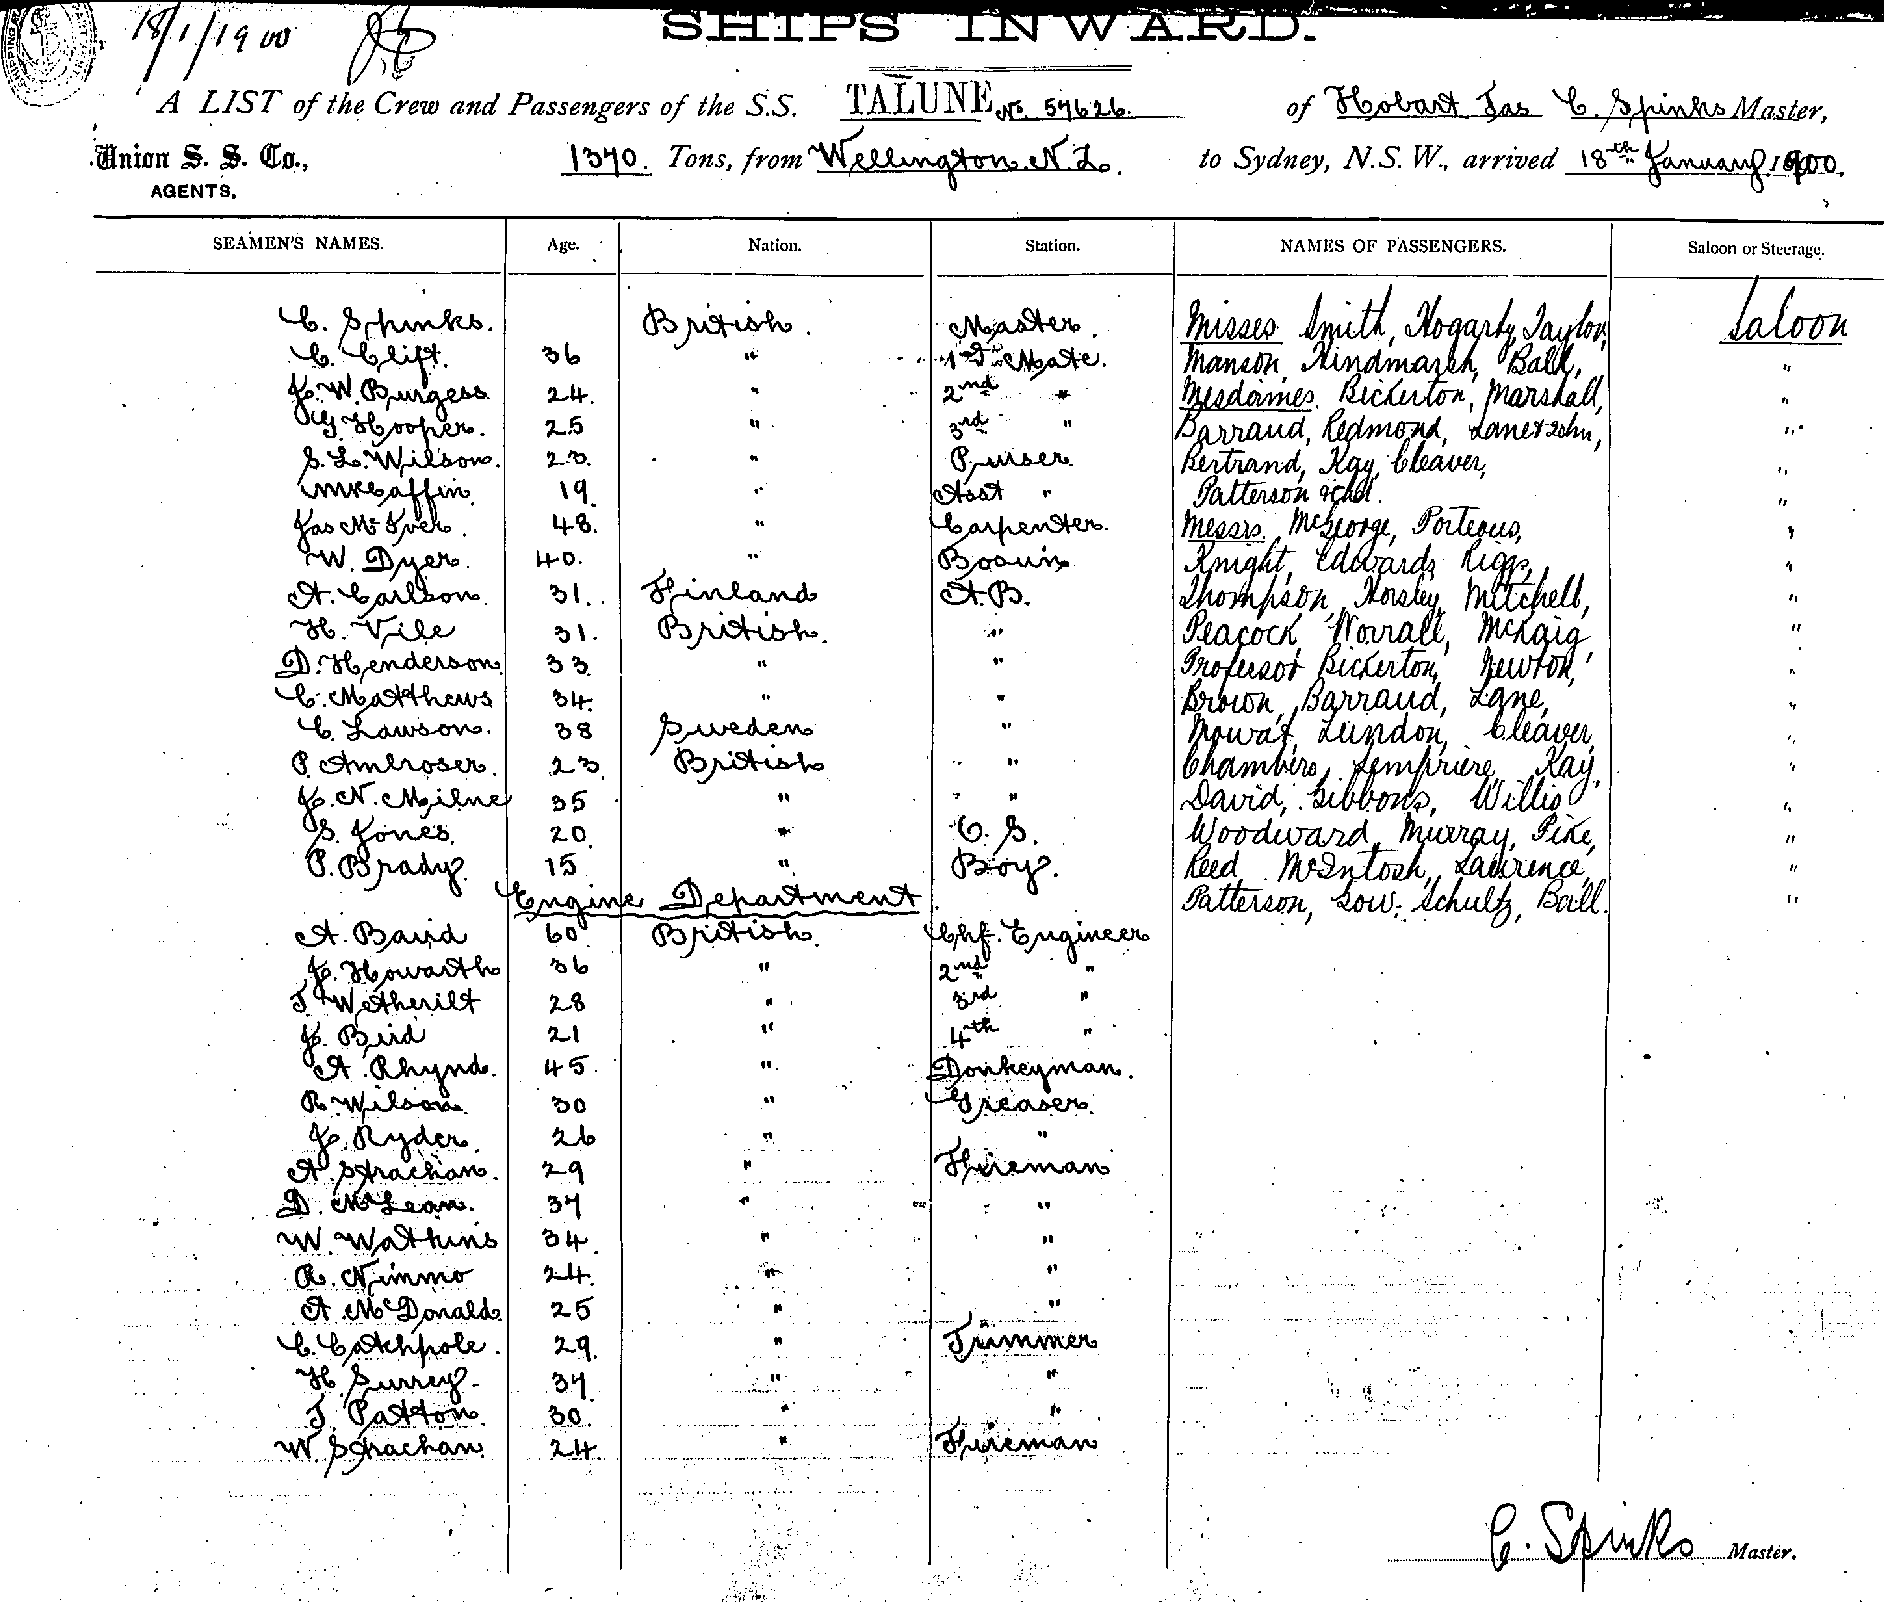 18/1/1900
SHIPS INWARD.
A LIST of the Crew and Passengers of the S.S. TALUNE No. 57626. of Hobart Tas C. Spinks Master,
Union S. S. Co., 1370. Tons, from Wellington. N.Z. to Sydney, N.S.W., arrived 18th January 1900.
AGENTS.
SEAMEN'S NAMES. Age. Nation. Station. NAMES OF PASSENGERS. Saloon or Steerage.
C. Spinks. British. Master. Misses Smith, Hogarty, Taylor, Saloon
C. Clift. 36 " 1st Mate. Manson, Hindmarsh, Ball, "
J. W. Burgess 24. " 2nd " Mesdames. Bickerton, Marshall, "
G. Hooper. 25 " 3rd " Barraud, Redmond, Lane & 2 chn, "
S. L. Wilson. 23. " Purser Bertrand, Kay, Cleaver, "
McCaffin. 19. " Asst " Patterson & chd. "
Jas McIver. 48. " Carpenter. Messrs. McGeorge, Porteous, "
W. Dyer. 40. " Bosun Knight, Edwards, Riggs, "
A. Carlson. 31. Finland A.B. Thompson, Horsley, Mitchell, "
H. Vile 31. British. " Peacock, Worrall, McKaig, "
D. Henderson. 33 " " Professor Bickerton, Newton, "
C. Matthews 34. " " Brown, Barraud, Lane, "
C. Lawson. 38 Sweden " Mowat, Lundon, Cleaver, "
P. Ambroser. 23 British " Chambers, Lempriere, Kay, "
J. N. Milne 35 " " David, Gibbons, Willis "
S. Jones. 20. " O. S. Woodward, Murray, Pike, "
P. Brady. 15 " Boy. Reed, McIntosh, Lawrence, "
Engine Department Patterson, Gow, Schultz, Ball. "
A. Baird 60 British. Chf. Engineer
J. Howarth 36 " 2nd "
T Wetherilt 28 " 3rd "
J. Bird 21 " 4th "
A. Rhynd. 45 " Donkeyman.
R. Wilson. 30 " Greaser.
J. Ryder. 26 " "
A. Strachan. 29 " Fireman
D. McLean. 37 " "
W. Watkins 34. " "
R. Nimmo 24. " "
A. McDonald. 25 " "
C. Catchpole. 29. " Trimmer
H. Surrey. 37. " "
T. Patton. 30. " "
W. Strachan. 24. " Fireman
C. Spinks Master.